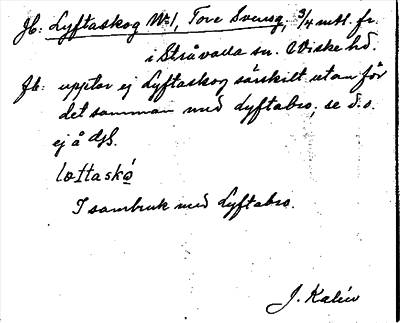 Jb: Lyftaskog No 1, Tore Svensg, 3/4 mtl. fr.
i Stråvalla sn. Viske hd.
Jb: upptar ej Lyftaskog särskilt utan för
det samman med Lyftabro, se d. o.
ej å GS.
lœttaskó
I sambruk med Lyftabro.
J. Kalén